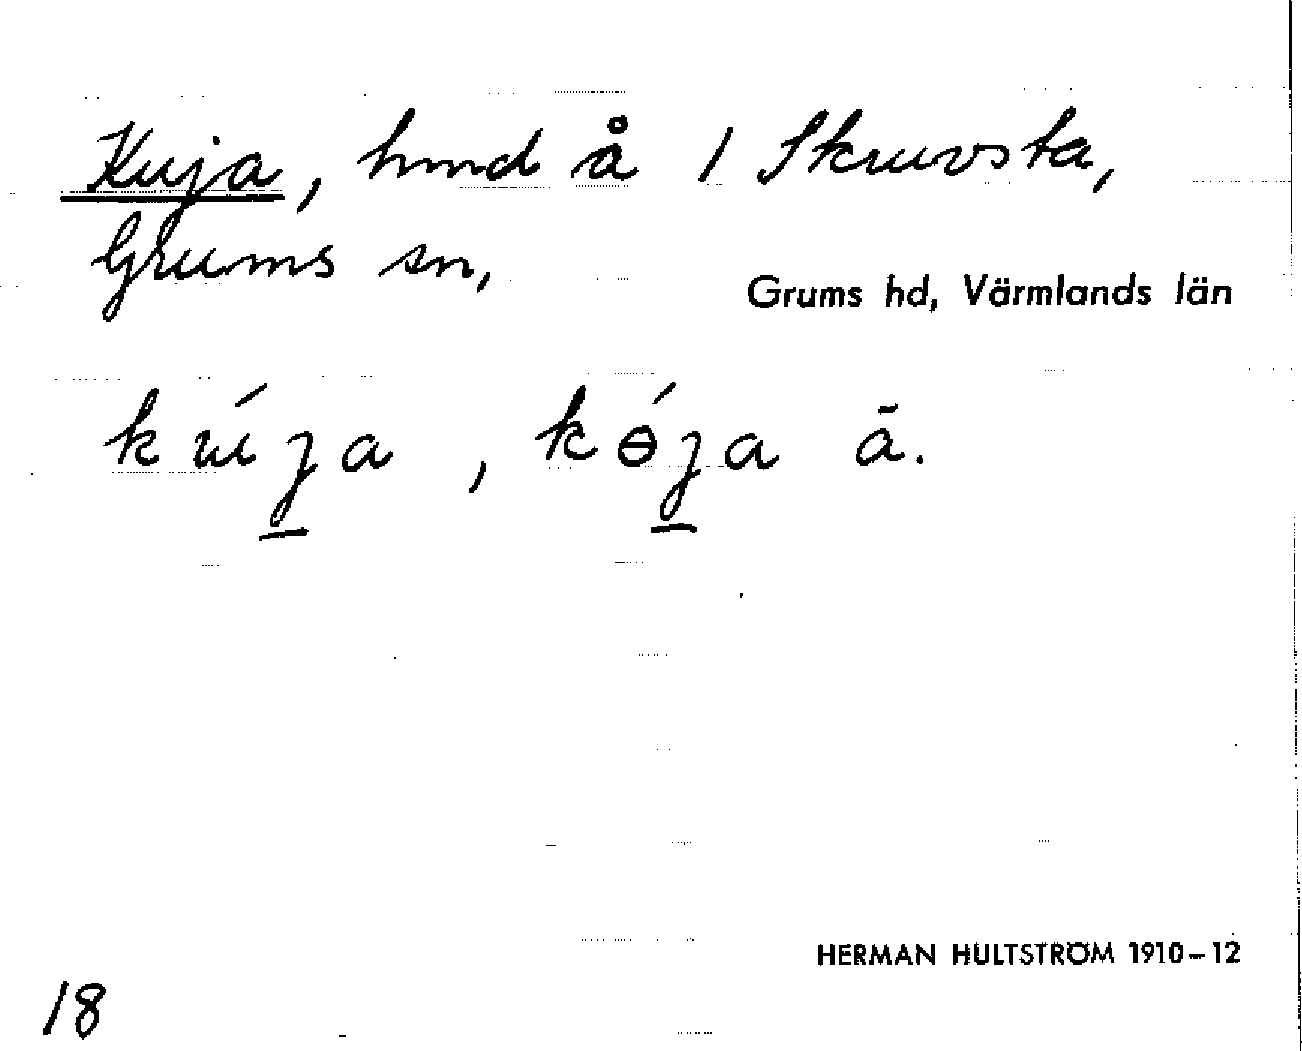 Kuja, hmd å 1 Skruvsta,
Grums sn,
Grums hd, Värmlands län
kúȷa, kɵ́ȷa ā.
HERMAN HULTSTRÖM 1910-12
18